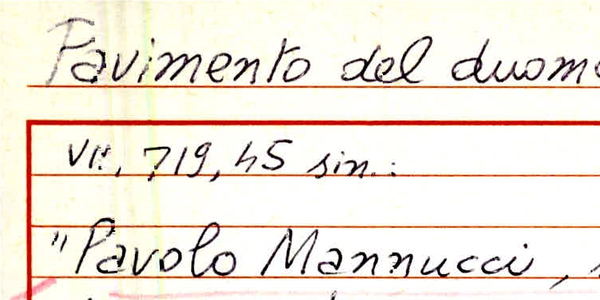 Pavimento del duomo
VII, 719, 45 sin.:
"Pavolo Mannucci,